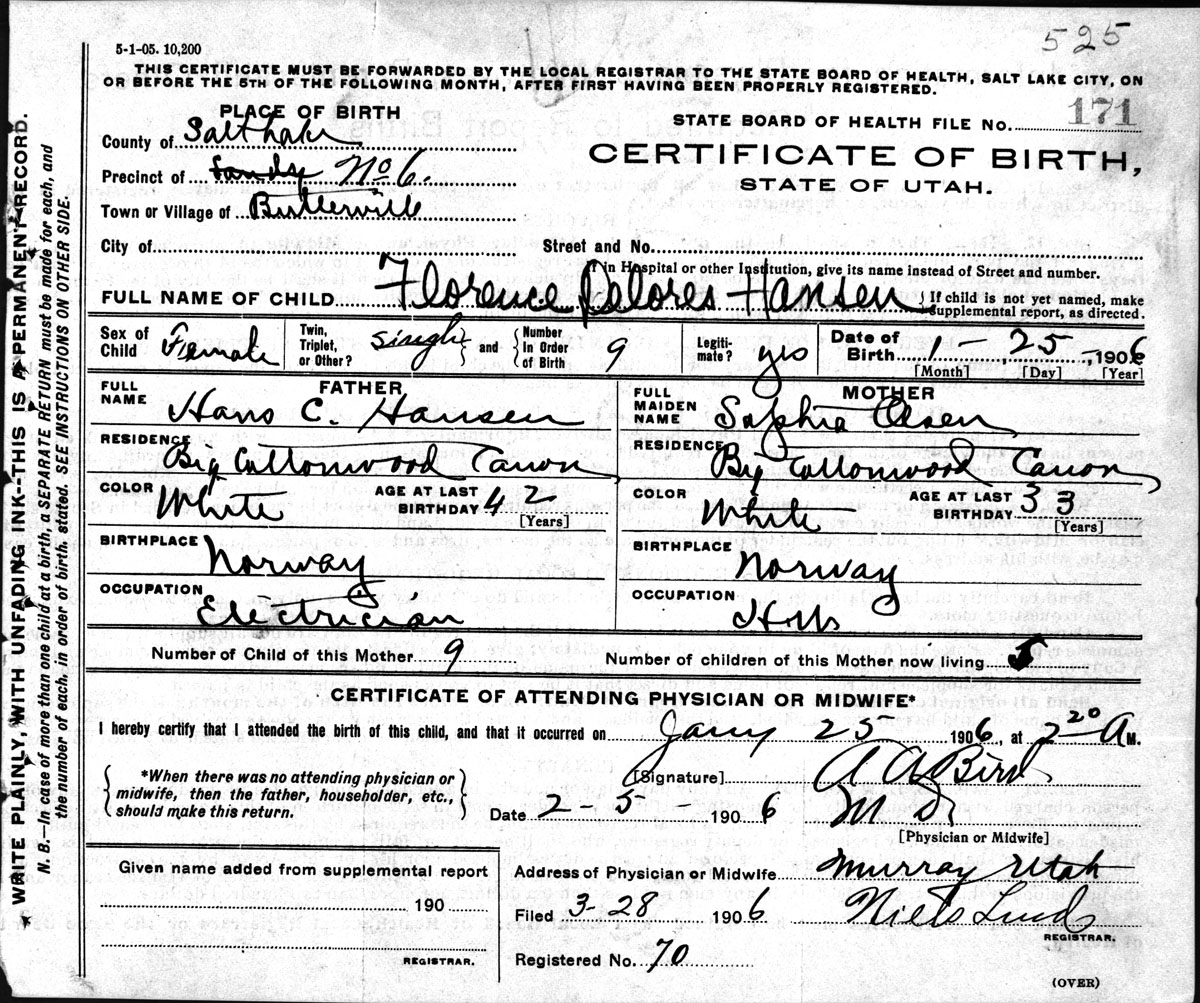 525
5-1-05. 10,200
THIS CERTIFICATE MUST BE FORWARDED BY THE LOCAL REGISTRAR TO THE STATE BOARD OF HEALTH, SALT LAKE CITY, ON
OR BEFORE THE 5TH OF THE FOLLOWING MONTH, AFTER FIRST HAVING BEEN PROPERLY REGISTERED.
PLACE OF BIRTH
STATE BOARD OF HEALTH FILE No. 171
County of Salt Lake
CERTIFICATE OF BIRTH,
STATE OF UTAH.
Precinct of Sandy No 6.
Town or Village of Butlerville
City of Street and No.
If in Hospital or other Institution, give its name instead of Street and number.
FULL NAME OF CHILD Florence Delores Hansen { If child is not yet named, make supplemental report, as directed.
Sex of Child Female Twin, Triplet, or Other? single } and { Number In Order of Birth 9 Legiti-mate? yes Date of Birth 1 - 25 -, 1906
[Month] [Day] [Year]
FATHER
FULL NAME Hans C. Hansen
RESIDENCE Big Cottonwood Canon
COLOR White AGE AT LAST BIRTHDAY 42 [Years]
BIRTHPLACE Norway
OCCUPATION Electrician
MOTHER
FULL MAIDEN NAME Sophia Olsen
RESIDENCE Big Cottonwood Canon
COLOR White AGE AT LAST BIRTHDAY 33 [Years]
BIRTHPLACE Norway
OCCUPATION
Number of Child of this Mother 9 Number of children of this Mother now living
CERTIFICATE OF ATTENDING PHYSICIAN OR MIDWIFE*
I hereby certify that I attended the birth of this child, and that it occurred on Jany 25 1906, at 2 20 A M.
{ *When there was no attending physician or midwife, then the father, householder, etc., should make this return. }
[Signature] A A Bird
Date 2-5- 1906 M D.
[Physician or Midwife]
Given name added from supplemental report
190
REGISTRAR.
Address of Physician or Midwife Murray Utah
Filed 3-28 1906 Niels Lind
REGISTRAR.
Registered No. 70
(OVER)
WRITE PLAINLY, WITH UNFADING INK--THIS IS A PERMANENT RECORD.
N. B.—In case of more than one child at a birth, a SEPARATE RETURN must be made for each, and
the number of each, in order of birth, stated. SEE INSTRUCTIONS ON OTHER SIDE.